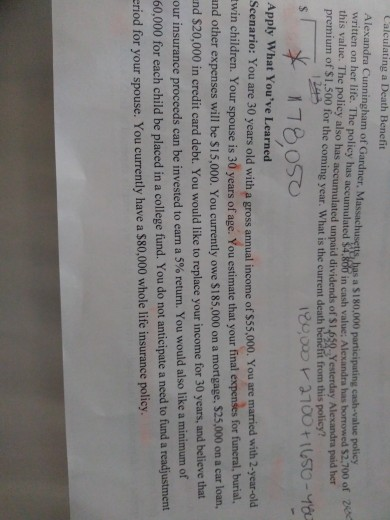 Calculating a Death Benefit
Alexandra Cunningham of Gardner, Massachusetts, has a $180,000 participating cash-value policy
written on her life. The policy has accumulated $4,800 in cash value; Alexandra has borrowed $2,700 of
this value. The policy also has accumulated unpaid dividends of $1,650. Yesterday Alexandra paid her
premium of $1,500 for the coming year. What is the current death benefit from this policy?
$
* 178,050
Apply What You've Learned
Scenario: You are 30 years old with a gross annual income of $55,000. You are married with 2-year-old
twin children. Your spouse is 30 years of age. You estimate that your final expenses for funeral, burial,
and other expenses will be $15,000. You currently owe $185,000 on a mortgage, $25,000 on a car loan,
and $20,000 in credit card debt. You would like to replace your income for 30 years, and believe that
our insurance proceeds can be invested to earn a 5% return. You would also like a minimum of
60,000 for each child be placed in a college fund. You do not anticipate a need to fund a readjustment
eriod for your spouse. You currently have a $80,000 whole life insurance policy.